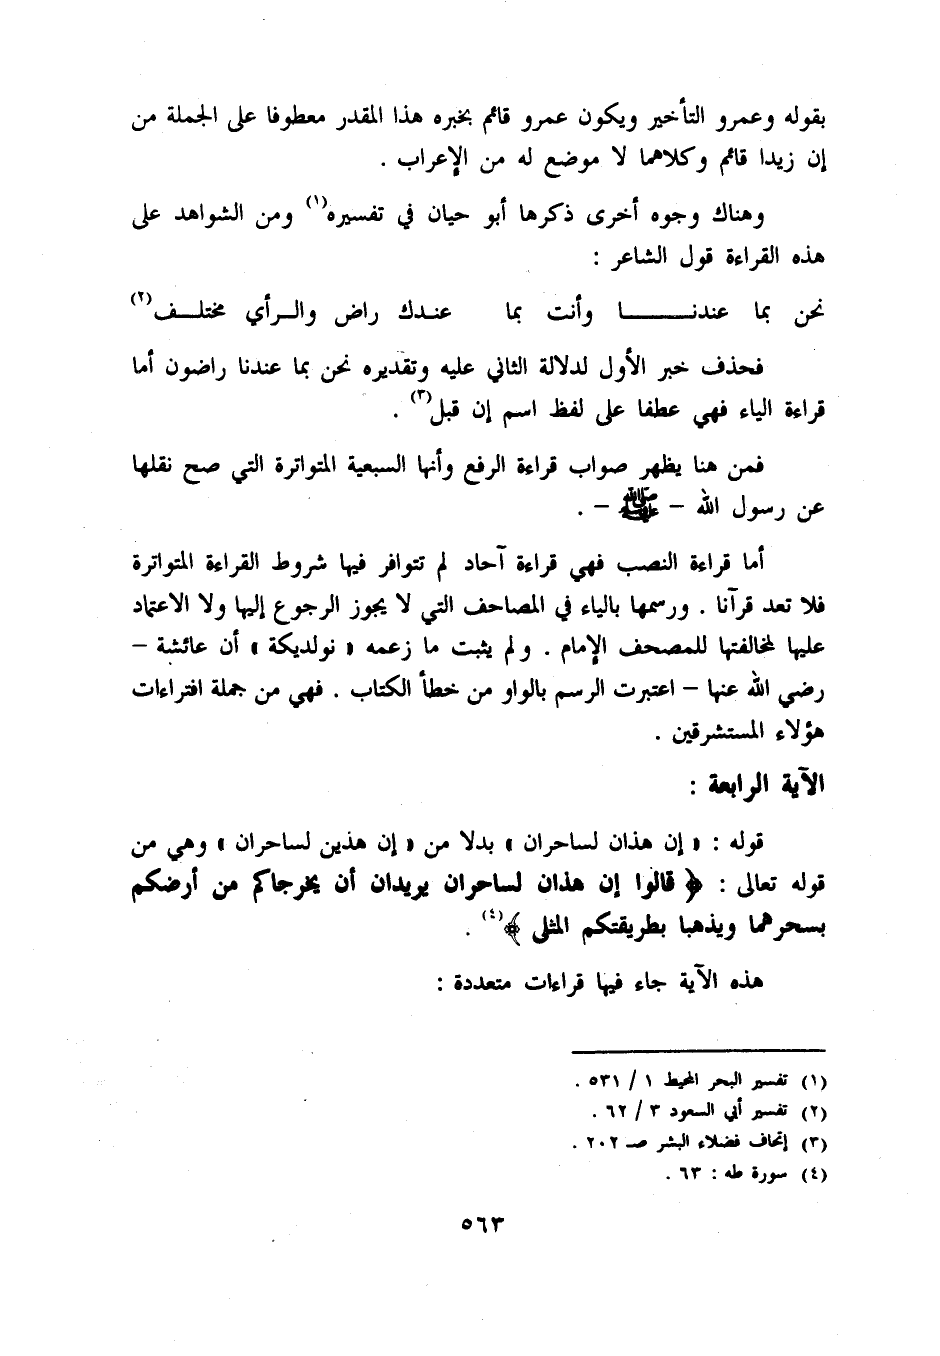 بقوله وعمرو التأخير ويكون عمرو قائم بخبره هذا المقدر معطوفا على الجملة من
إن زيدا قائم وكلاهما لا موضع له من الإعراب .
وهناك وجوه أخرى ذكرها أبو حيان في تفسيره(١) ومن الشواهد على
هذه القراءة قول الشاعر :
نحن بما عندنـــــــا وأنت بما عنـدك راض والـرأي مختلـف(٢)
فحذف خبر الأول لدلالة الثاني عليه وتقديره نحن بما عندنا راضون أما
قراءة الياء فهي عطفا على لفظ اسم إن قبل(٣) .
فمن هنا يظهر صواب قراءة الرفع وأنها السبعية المتواترة التي صح نقلها
عن رسول الله – ﷺ – .
أما قراءة النصب فهي قراءة آحاد لم تتوافر فيها شروط القراءة المتواترة
فلا تعد قرآنا . ورسمها بالياء في المصاحف التي لا يجوز الرجوع إليها ولا الاعتماد
عليها لمخالفتها للمصحف الإمام . ولم يثبت ما زعمه « نولديكة » أن عائشة –
رضي الله عنها – اعتبرت الرسم بالواو من خطأ الكتاب . فهي من جملة افتراءات
هؤلاء المستشرقين .
الآية الرابعة :
قوله : « إن هذان لساحران » بدلا من « إن هذين لساحران » وهي من
قوله تعالى : ﴿ قالوا إن هذان لساحران يريدان أن يخرجاكم من أرضكم
بسحرهما ويذهبا بطريقتكم المثلى ﴾(٤) .
هذه الآية جاء فيها قراءات متعددة :
(١) تفسير البحر المحيط ١ / ٥٣١ .
(٢) تفسير أبي السعود ٣ / ٦٢ .
(٣) إتحاف فضلاء البشر صـ ٢٠٢ .
(٤) سورة طه : ٦٣ .
٥٦٣